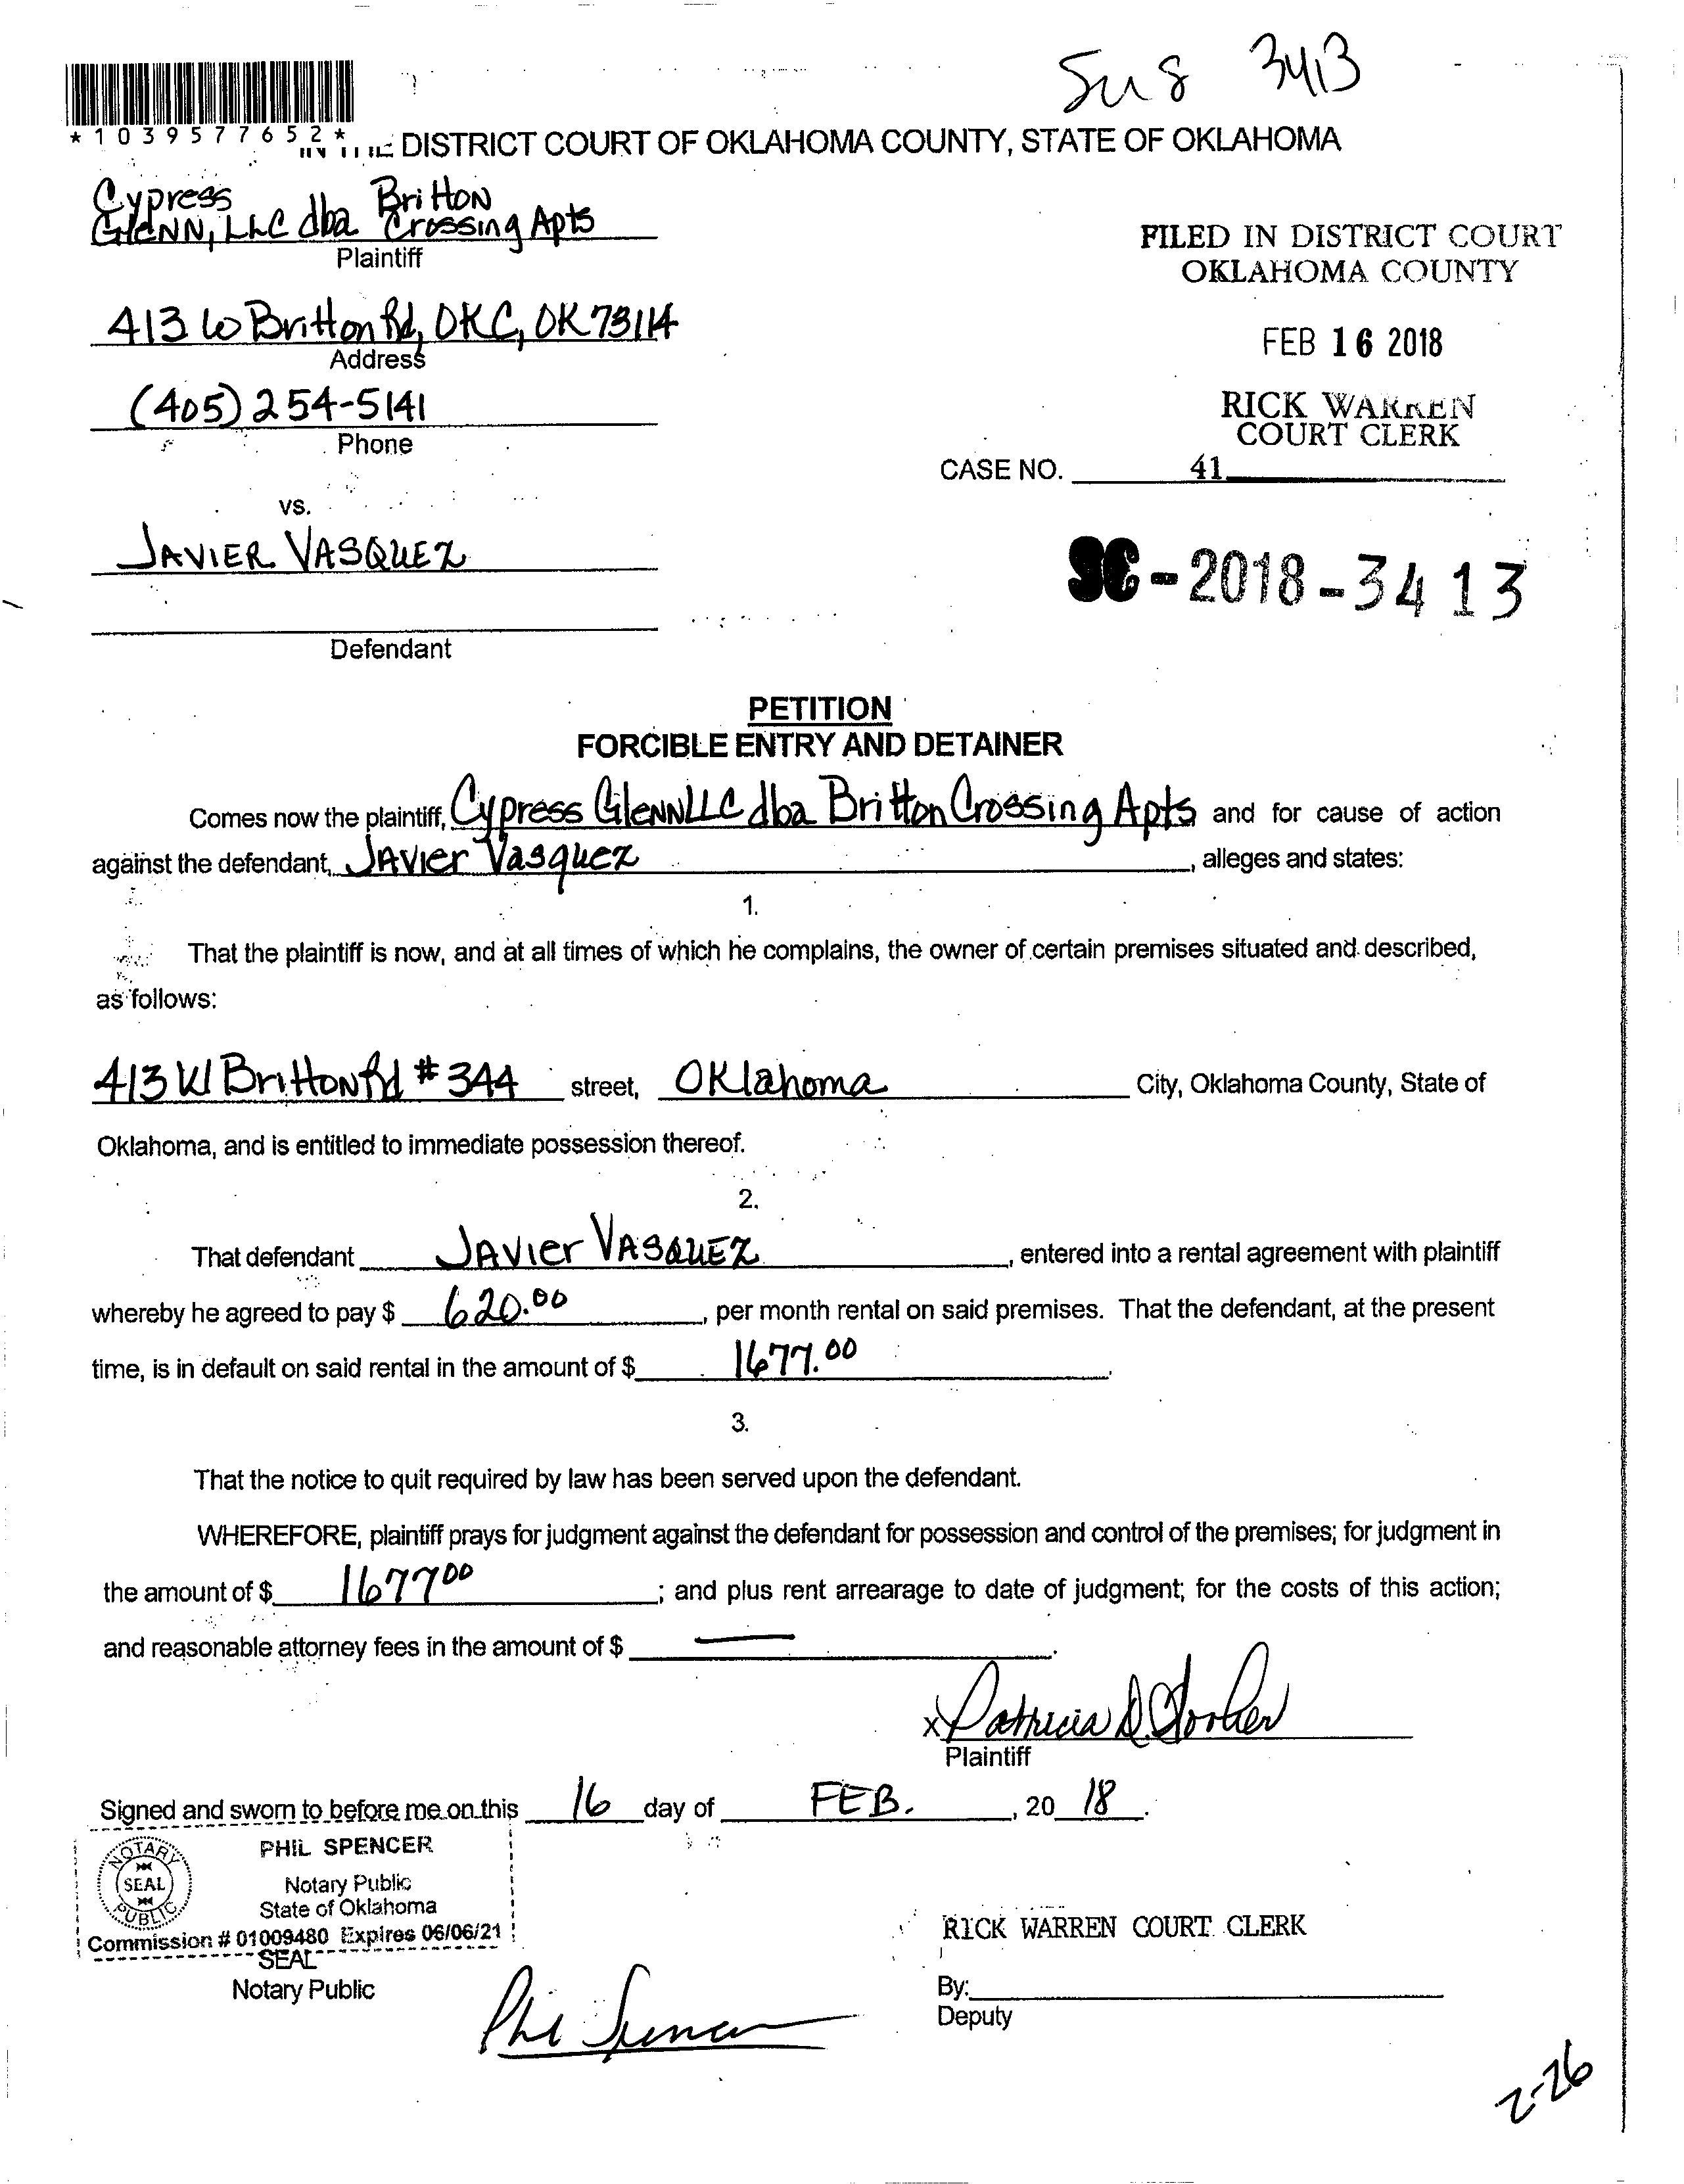 3413
*1039577652*
IN THE DISTRICT COURT OF OKLAHOMA COUNTY, STATE OF OKLAHOMA
Cypress Britton
Glenn, LLC dba Crossing Apts
Plaintiff
413 W Britton Rd, OKC, OK 73114
Address
(405) 254-5141
Phone
vs.
JAVIER VASQUEZ
Defendant
FILED IN DISTRICT COURT
OKLAHOMA COUNTY
FEB 16 2018
RICK WARREN
COURT CLERK
CASE NO. 41
SC-2018-3413
PETITION
FORCIBLE ENTRY AND DETAINER
Comes now the plaintiff, Cypress Glenn LLC dba Britton Crossing Apts and for cause of action
against the defendant, Javier Vasquez, alleges and states:
1.
That the plaintiff is now, and at all times of which he complains, the owner of certain premises situated and described,
as follows:
413 W Britton Rd # 344 street, Oklahoma City, Oklahoma County, State of
Oklahoma, and is entitled to immediate possession thereof.
2.
That defendant Javier VASQUEZ, entered into a rental agreement with plaintiff
whereby he agreed to pay $ 620.00, per month rental on said premises. That the defendant, at the present
time, is in default on said rental in the amount of $ 1677.00.
3.
That the notice to quit required by law has been served upon the defendant.
WHEREFORE, plaintiff prays for judgment against the defendant for possession and control of the premises; for judgment in
the amount of $ 1677 00; and plus rent arrearage to date of judgment; for the costs of this action;
and reasonable attorney fees in the amount of $ —.
x Patricia D.
Plaintiff
Signed and sworn to before me on this 16 day of FEB., 20 18.
NOTARY
SEAL
PUBLIC
PHIL SPENCER
Notary Public
State of Oklahoma
Commission # 01009480 Expires 06/06/21
SEAL
Notary Public
Phil Spencer
RICK WARREN COURT CLERK
By:
Deputy
2-26